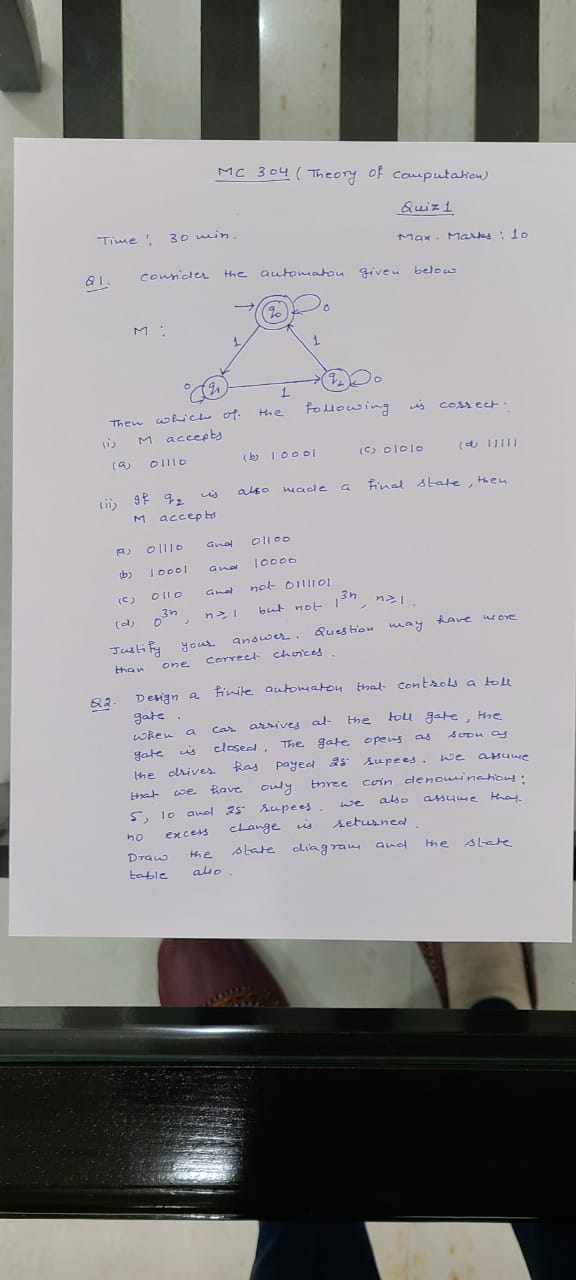 MC 304 (Theory of Computation)
Quiz 1
Time : 30 min.
Max. Marks : 10
Q1. Consider the automaton given below
M :
q0
0
1
1
0
q1
1
q2
0
Then which of the following is correct :
(i) M accepts
(a) 01110 (b) 10001 (c) 01010 (d) 11111
(ii) If q2 is also made a final state, then
M accepts
(a) 01110 and 01100
(b) 10001 and 10000
(c) 0110 and not 0111101
(d) 0^3n, n≥1 but not 1^3n, n≥1.
Justify your answer. Question may have more
than one correct choices.
Q2. Design a finite automaton that controls a toll
gate.
When a car arrives at the toll gate, the
gate is closed. The gate opens as soon as
the driver has payed 25 rupees. We assume
that we have only three coin denominations :
5, 10 and 25 rupees. We also assume that
no excess change is returned.
Draw the state diagram and the state
table also.